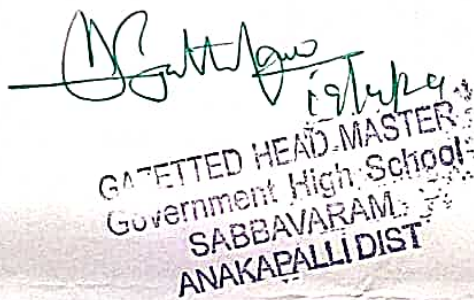 GAZETTED HEAD MASTER
Government High School
SABBAVARAM
ANAKAPALLI DIST